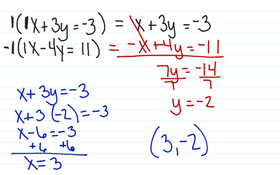 1(1x+3y=-3) = x+3y=-3
-1(1x-4y=11) = -x+4y=-11
7y = -14
7 7
y = -2
x+3y=-3
x+3(-2)=-3
x-6=-3
+6 +6
x=3
(3,-2)